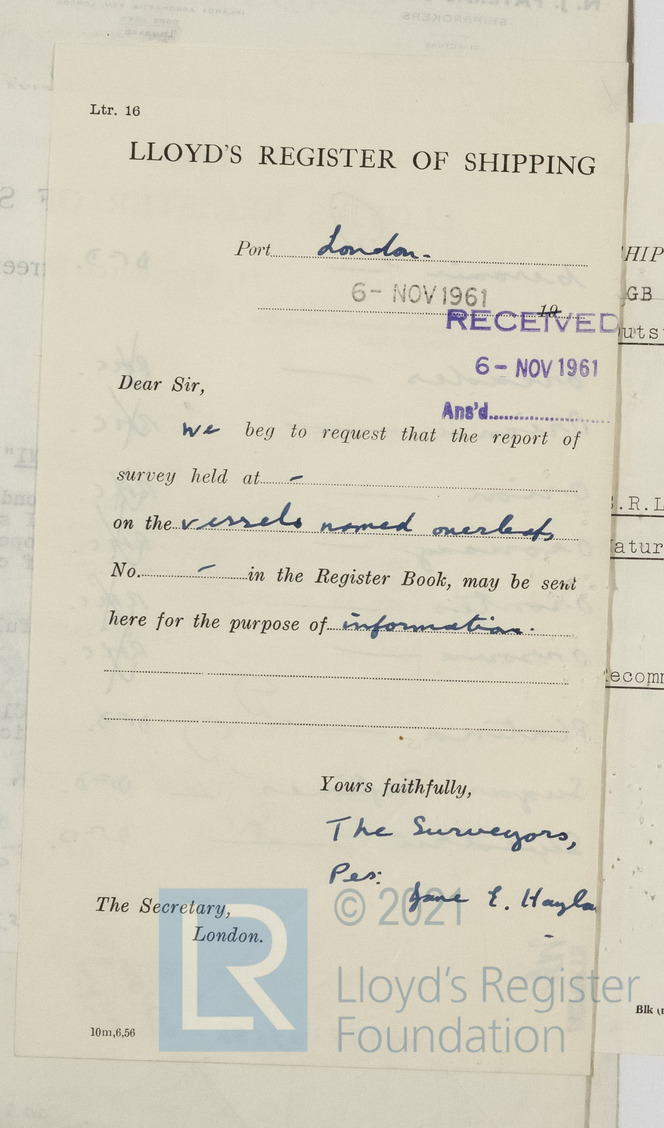 Ltr. 16
LLOYD'S REGISTER OF SHIPPING
Port London.
6 - NOV 1961 19
RECEIVED
6 - NOV 1961
Ans'd
Dear Sir,
We beg to request that the report of
survey held at -
on the vessels named overleaf
No. - in the Register Book, may be sent
here for the purpose of information.
Yours faithfully,
The Surveyors,
Per: Jane E. Hayla
The Secretary,
London.
10m,6,56
LR
© 2021
Lloyd's Register
Foundation
HIP
GB
uts
.R.L
atur
ecomm
Blk